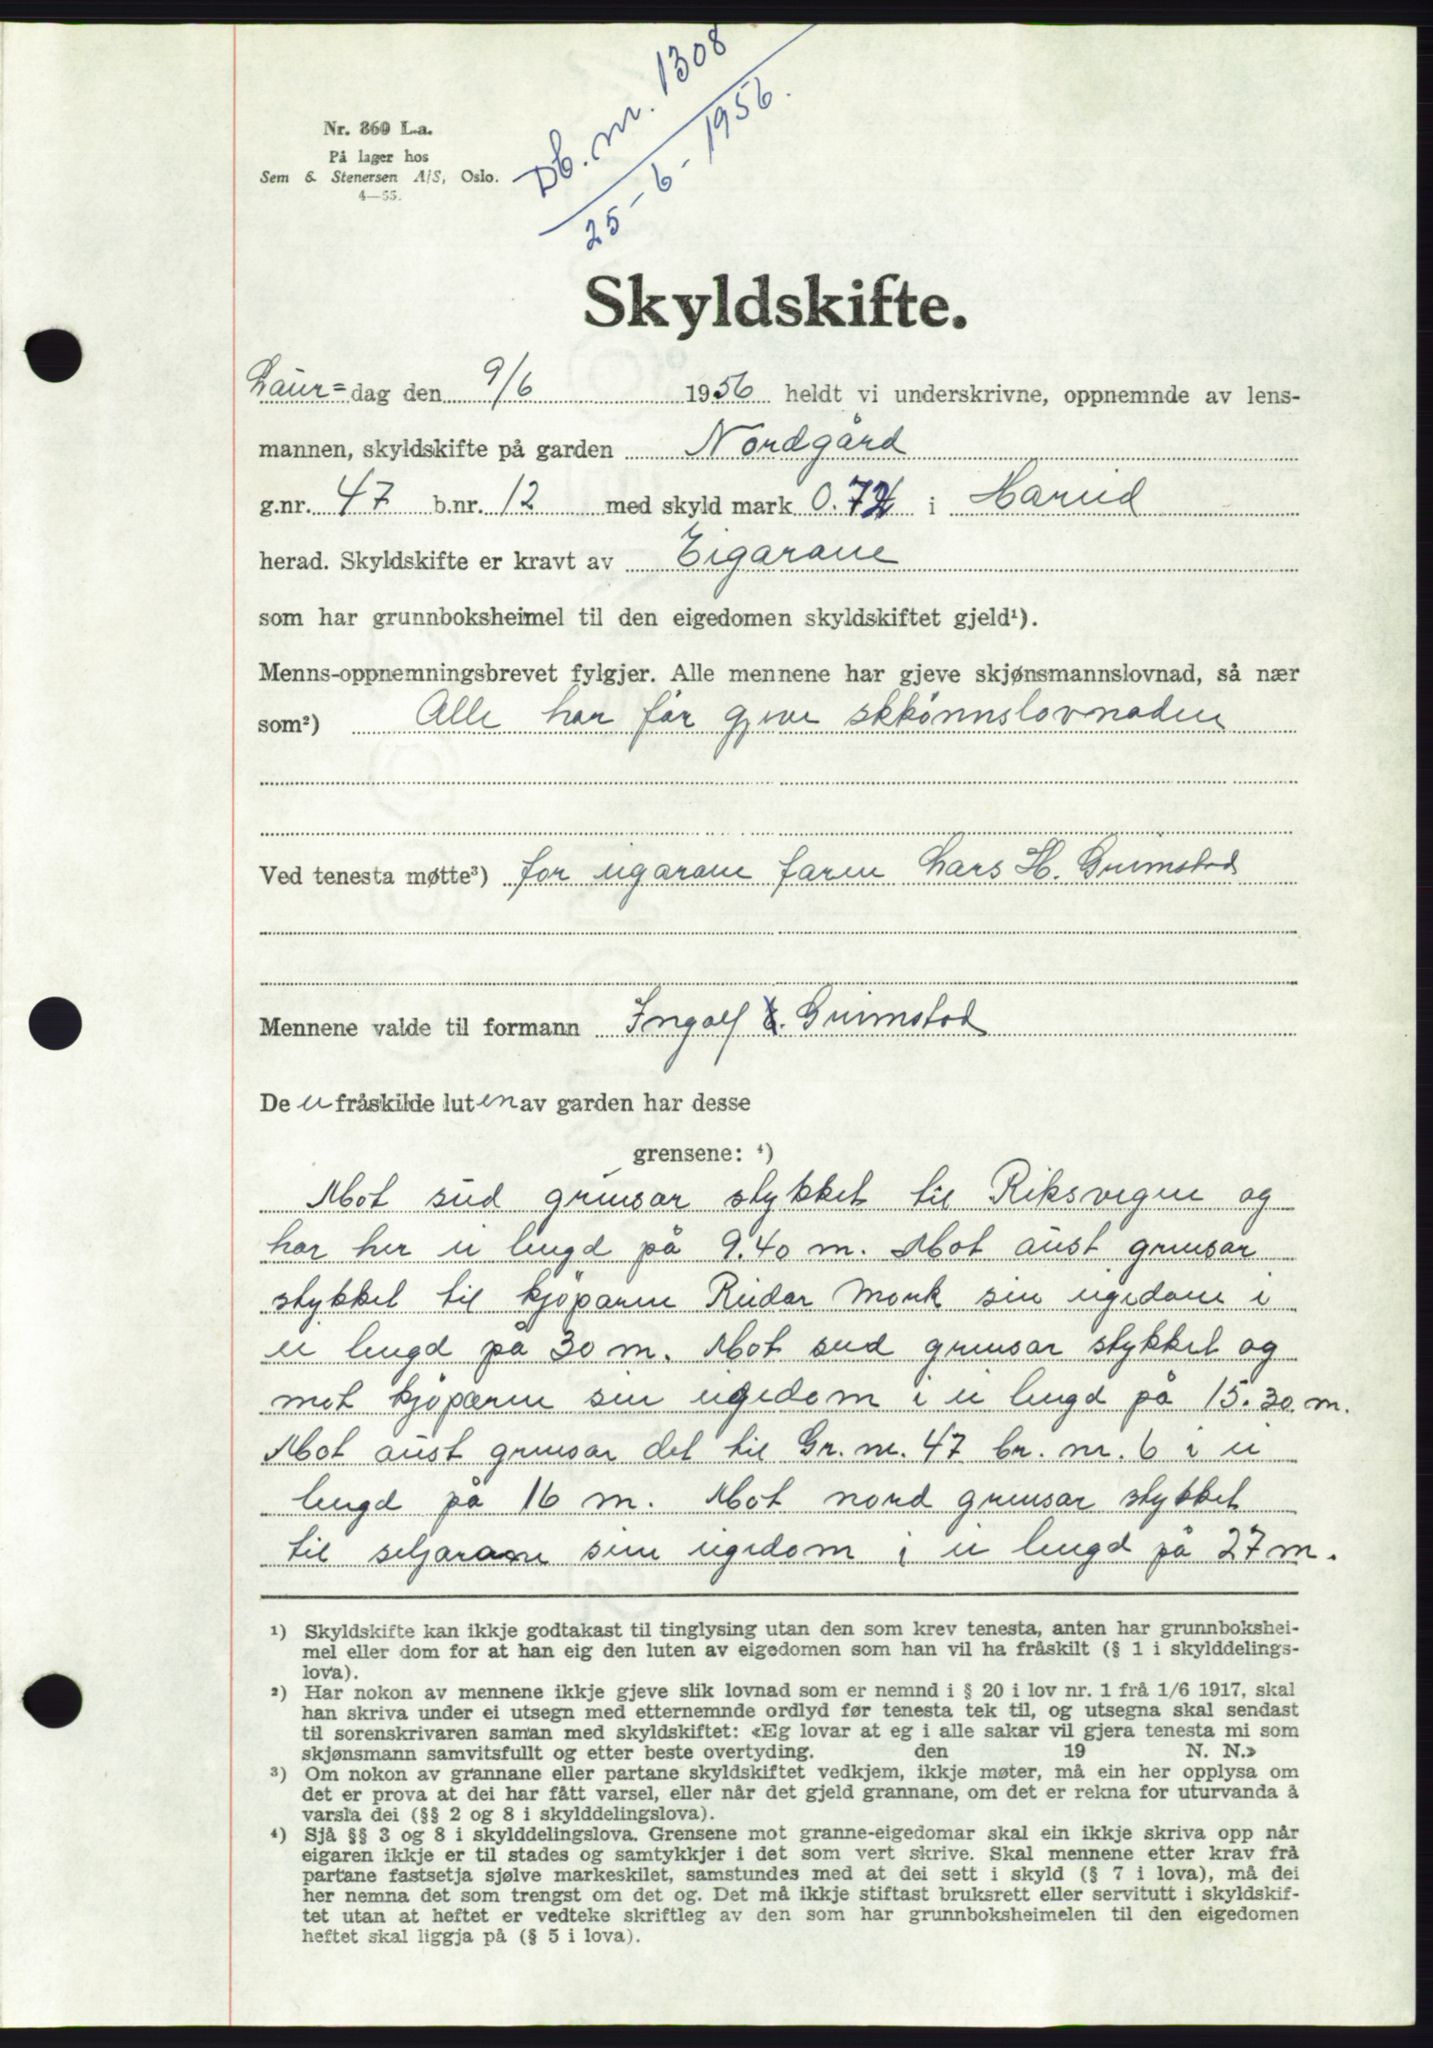 Db. nr. 1308
25-6-1956.
Nr. 860 L.a.
På lager hos
Sem & Stenersen A/S, Oslo.
4—55.
Skyldskifte.
Laur=dag den 9/6 1956 heldt vi underskrivne, oppnemnde av lens-
mannen, skyldskifte på garden Nordgård
g.nr. 47 b.nr. 12 med skyld mark 0.72 i Hareid
herad. Skyldskifte er kravt av Eigarane
som har grunnboksheimel til den eigedomen skyldskiftet gjeld¹).
Menns-oppnemningsbrevet fylgjer. Alle mennene har gjeve skjønsmannslovnad, så nær
som²) Alle har før gjeve skkönnslovnaden
Ved tenesta møtte³) for eigarane faren Lars H. Grimstad
Mennene valde til formann Ingolf Grimstad
De ei fråskilde luten av garden har desse
grensene: ⁴)
Mot sud grensar stykket til Riksvegen og
har her ei lengd på 9.40 m. Mot aust grensar
stykket til kjöparen Reidar Mork sin eigedom i
ei lengd på 30 m. Mot sud grensar stykket og
mot kjöparen sin eigedom i ei lengd på 15.30 m.
Mot aust grensar det til Gr. nr. 47 br. nr. 6 i ei
lengd på 16 m. Mot nord grensar stykket
til seljarane sin eigedom i ei lengd på 27 m.
¹) Skyldskifte kan ikkje godtakast til tinglysing utan den som krev tenesta, anten har grunnbokshei-
mel eller dom for at han eig den luten av eigedomen som han vil ha fråskilt (§ 1 i skylddelings-
lova).
²) Har nokon av mennene ikkje gjeve slik lovnad som er nemnd i § 20 i lov nr. 1 frå 1/6 1917, skal
han skriva under ei utsegn med etternemnde ordlyd før tenesta tek til, og utsegna skal sendast
til sorenskrivaren saman med skyldskiftet: «Eg lovar at eg i alle sakar vil gjera tenesta mi som
skjønsmann samvitsfullt og etter beste overtyding. den 19 N. N.»
³) Om nokon av grannane eller partane skyldskiftet vedkjem, ikkje møter, må ein her opplysa om
det er prova at dei har fått varsel, eller når det gjeld grannane, om det er rekna for uturvanda å
varsla dei (§§ 2 og 8 i skylddelingslova).
⁴) Sjå §§ 3 og 8 i skylddelingslova. Grensene mot granne-eigedomar skal ein ikkje skriva opp når
eigaren ikkje er til stades og samtykkjer i det som vert skrive. Skal mennene etter krav frå
partane fastsetja sjølve markeskilet, samstundes med at dei sett i skyld (§ 7 i lova), må dei
her nemna det som trengst om det og. Det må ikkje stiftast bruksrett eller servitutt i skyldskif-
tet utan at heftet er vedteke skriftleg av den som har grunnboksheimelen til den eigedomen
heftet skal liggja på (§ 5 i lova).